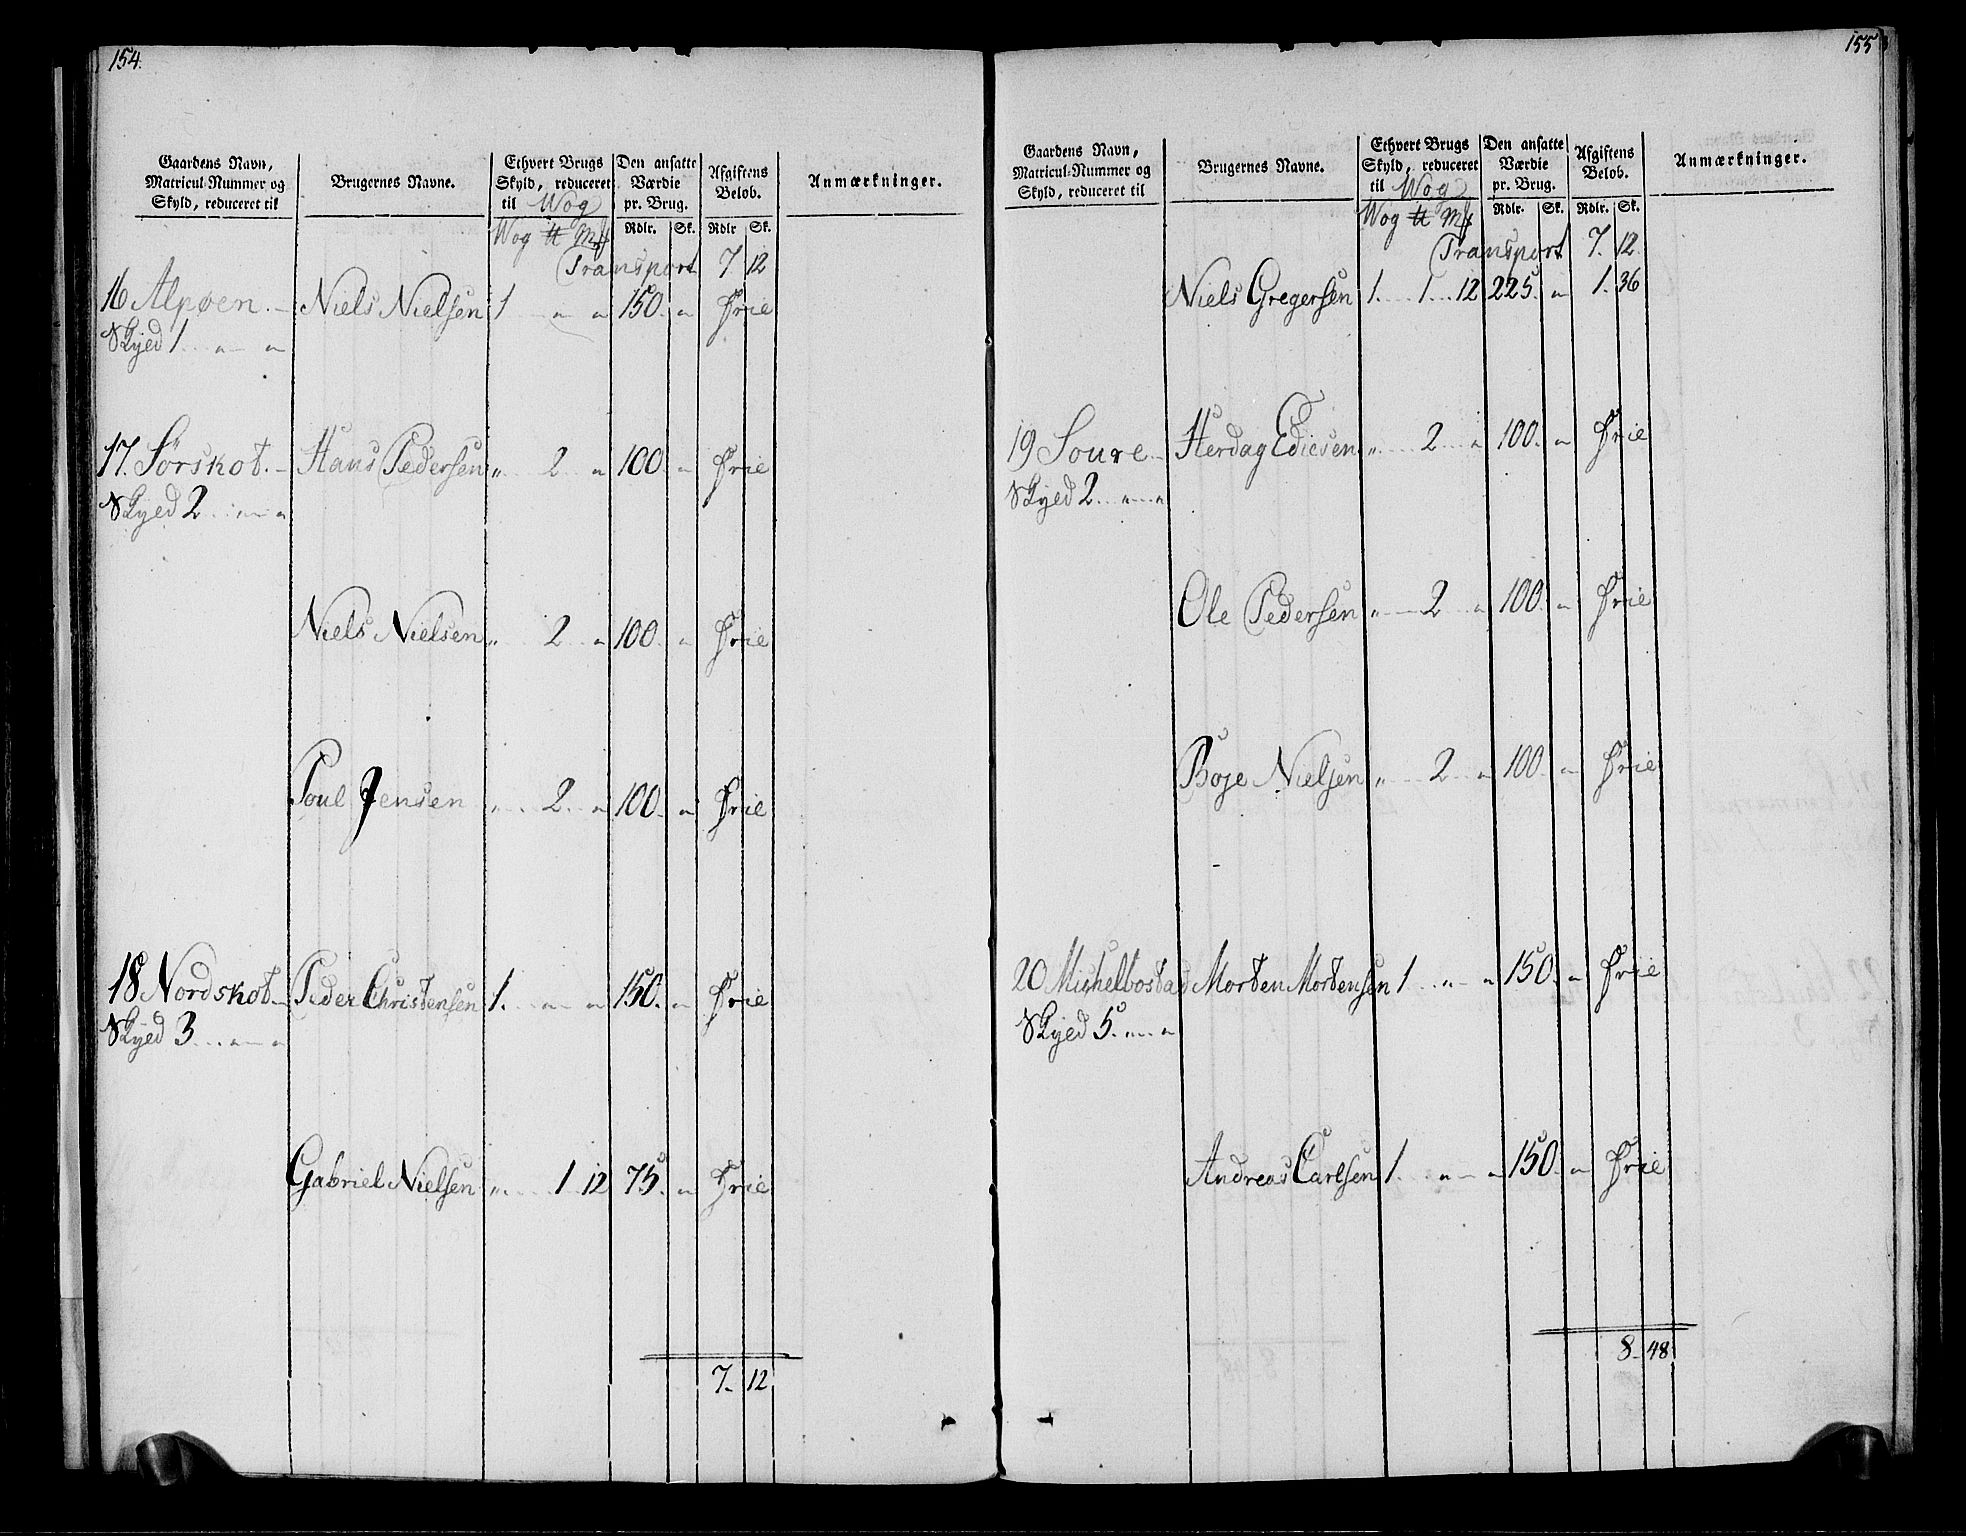 154.
Gaardens Navn, Matricul-Nummer og Skyld, reduceret til
Brugernes Navne.
Ethvert Brugs Skyld, reduceret til Wog
Den ansatte Værdie pr. Brug.
Afgiftens Beløb.
Anmærkninger.
Wog ℔ Mk Rdlr. Sk. Rdlr Sk.
Transport 7. 12
16 Alpøen. Niels Nielsen 1 " " 150. " Frie
Skyed 1 . " "
17. Sørskot. Hans Pedersen " 2 " 100. " Frie
Skyed 2 . " "
Niels Nielsen " 2 " 100. " Frie
Poul Jensen " 2. " 100. " Frie
18 Nordskot Peder Christensen 1. " " 150. " Frie
Skyed 3 . " "
Gabriel Nielsen " 1 12 75. " Frie
7. 12
155
Gaardens Navn, Matricul-Nummer og Skyld, reduceret til
Brugernes Navne.
Ethvert Brugs Skyld, reduceret til Wog
Den ansatte Værdie pr. Brug.
Afgiftens Beløb.
Anmærkninger.
Wog ℔ Mk Rdlr. Sk. Rdlr. Sk.
Transport 7. 12.
Niels Gregersen 1. 1 12 225. " 1. 36
19 Soure Herdag Ediesen " 2 " 100. " Frie
Skyed 2 . " "
Ole Pedersen " 2 " 100. " Frie
Boje Nielsen " 2 " 100. " Frie
20 Mishelbostad Morten Mortensen 1 " " 150. " Frie
Skyed 5. " "
Andreas Carlsen 1. " " 150. " Frie
8. 48